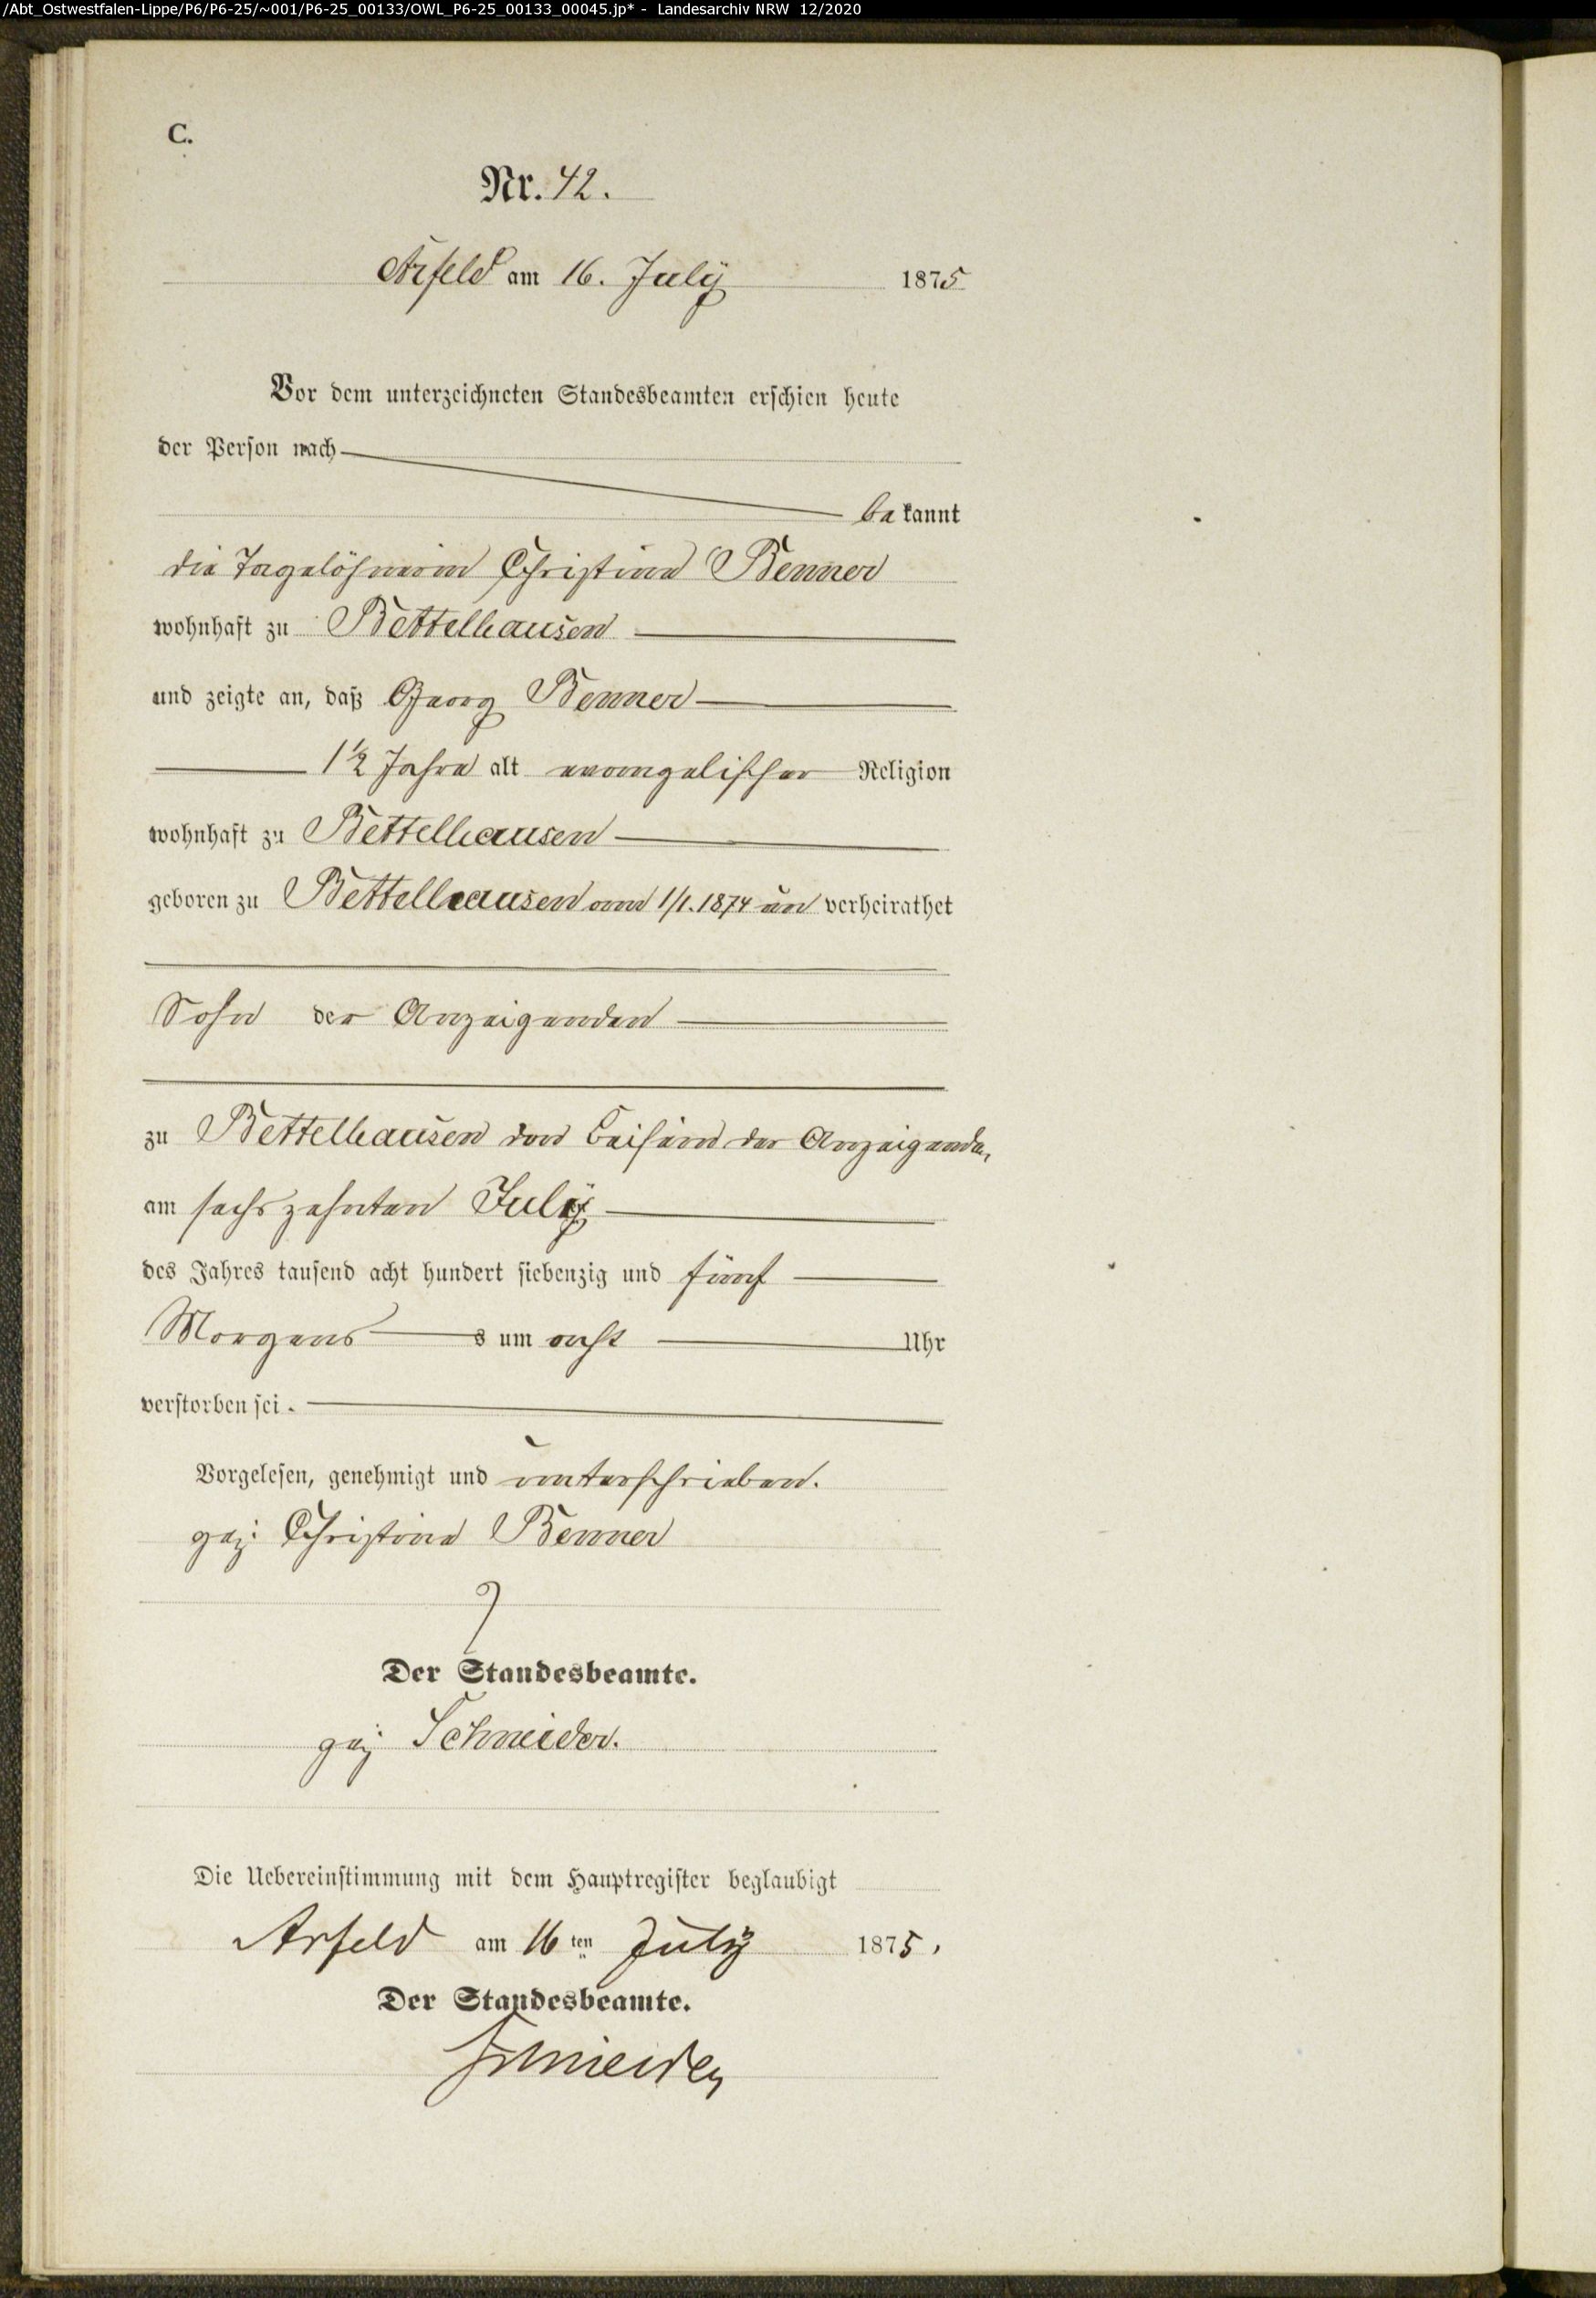 /Abt_Ostwestfalen-Lippe/P6/P6-25/~001/P6-25_00133/OWL_P6-25_00133_00045.jp* - Landesarchiv NRW 12/2020
C.
Nr. 42.
Arfeld am 16. July 1875
Vor dem unterzeichneten Standesbeamten erschien heute
der Person nach
bekannt
die Tagelöhnerin Christine Benner
wohnhaft zu Bettelhausen
und zeigte an, daß Georg Benner
1½ Jahre alt evangelischer Religion
wohnhaft zu Bettelhausen
geboren zu Bettelhausen am 1/1. 1874 unverheirathet
Sohn der Anzeigenden
zu Bettelhausen Beisein der Anzeigenden
am sechszehnten July
des Jahres tausend acht hundert siebenzig und fünf
Morgens s um acht Uhr
verstorben sei.
Vorgelesen, genehmigt und unterschrieben.
gez: Christine Benner
Der Standesbeamte.
gez Schneider.
Die Uebereinstimmung mit dem Hauptregister beglaubigt
Arfeld am 16ten July 1875,
Der Standesbeamte.
Schneider